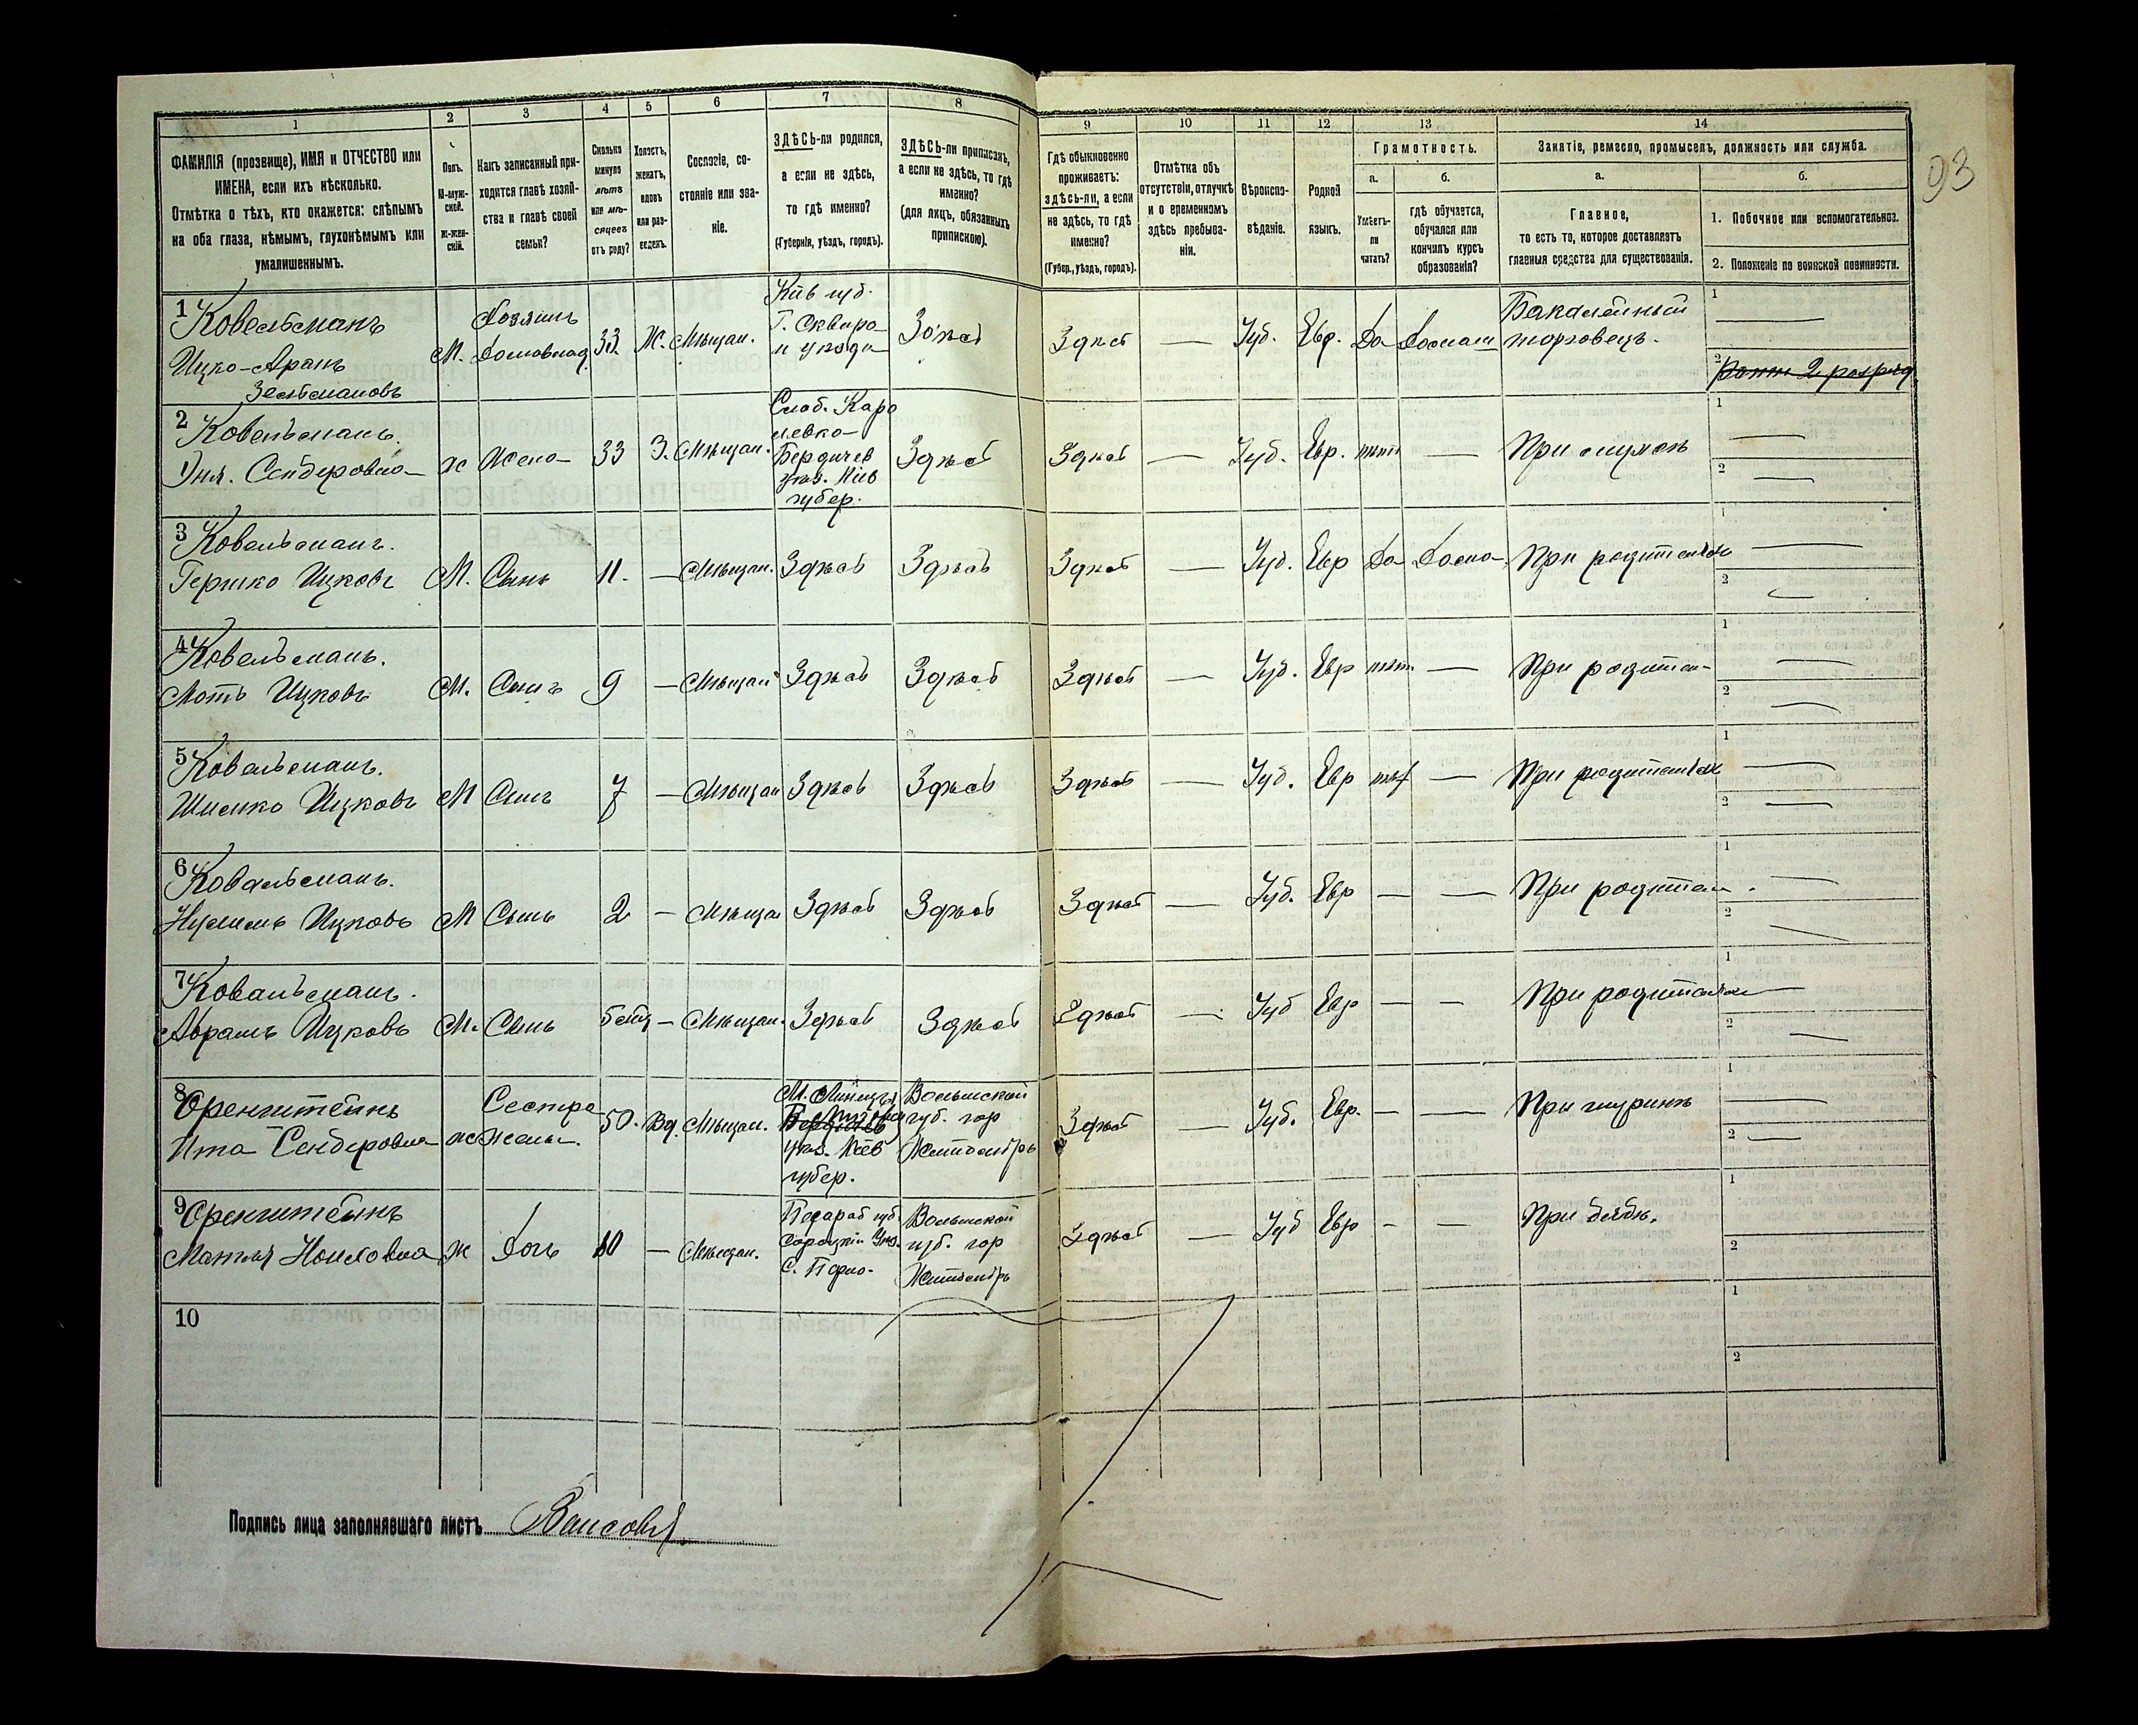 93
1 2 3 4 5 6 7 8 9 10 11 12 13 14
ФАМИЛІЯ (прозвище), ИМЯ и ОТЧЕСТВО или
ИМЕНА, если ихъ нѣсколько.
Отмѣтка о тѣхъ, кто окажется: слѣпымъ
на оба глаза, нѣмымъ, глухонѣмымъ или
умалишеннымъ.
Полъ.
М-муж-
ской.
ж-жен-
скій.
Какъ записанный при-
ходится главѣ хозяй-
ства и главѣ своей
семьи?
Сколько
минуло
лѣтъ
или мѣ-
сяцевъ
отъ роду?
Холостъ,
женатъ,
вдовъ
или раз-
веденъ.
Сословіе, со-
стояніе или зва-
ніе.
ЗДѢСЬ-ли родился,
а если не здѣсь,
то гдѣ именно?
(Губернія, уѣздъ, городъ).
ЗДѢСЬ-ли приписанъ,
а если не здѣсь, то гдѣ
именно?
(для лицъ, обязанныхъ
припискою).
Гдѣ обыкновенно
проживаетъ:
здѣсь-ли, а если
не здѣсь, то гдѣ
именно?
(Губер., уѣздъ, городъ).
Отмѣтка объ
отсутствіи, отлучкѣ
и о временномъ
здѣсь пребыва-
ніи.
Вѣроиспо-
вѣданіе.
Родной
языкъ.
Грамотность.
а.
Умѣетъ-
ли
читать?
б.
гдѣ обучается,
обучался или
кончилъ курсъ
образованія?
Занятіе, ремесло, промыселъ, должность или служба.
а.
Главное,
то есть то, которое доставляетъ
главныя средства для существованія.
б.
1. Побочное или вспомогательное.
2. Положеніе по воинской повинности.
1 Ковельсманъ
Ицко-Аранъ
Зельмановъ
М.
Хозяинъ
33
Ж.
Мѣщан.
Кіев губ.
Г. Сквира
и уѣзда
Здѣсь
Здѣсь
—
Іуд.
Евр.
Да
Бакалейный
торговецъ.
1 —
2
2 разряд
2 Ковельсманъ.
Сендеровна
ж
Жена
33
З.
Мѣщан.
Слоб. Каро
левка
Бердичев
уѣз. Кіев
губер.
Здѣсь
Здѣсь
—
Іуд.
Евр.
нѣт
—
При мужѣ
1 —
2 —
3 Ковельсманъ.
Гершко Ицковъ
М.
Сынъ
11.
—
Мѣщан.
Здѣсь
Здѣсь
Здѣсь
—
Іуд.
Евр
Да
Дома
При родителях
1 —
2 —
4 Ковельсманъ.
Моть Ицковъ
М.
Сынъ
9
—
Мѣщан
Здѣсь
Здѣсь
Здѣсь
—
Іуд.
Евр
нѣт
—
При родител
1 —
2 —
5 Ковельсманъ.
Ицковъ
М
Сынъ
7
—
Мѣщан
Здѣсь
Здѣсь
Здѣсь
—
Іуд.
Евр
нѣт
—
При родителях
1 —
2 —
6 Ковельсманъ.
Ицковъ
М
Сынъ
2
—
Мѣща
Здѣсь
Здѣсь
Здѣсь
—
Іуд.
Евр
—
—
При родител
1 —
2 —
7 Ковельсманъ.
Абрамъ Ицковъ
М.
Сынъ
—
Мѣщан.
Здѣсь
Здѣсь
Здѣсь
—
Іуд
Евр
—
—
При родителях
1 —
2 —
8 Оренштейнъ
Ита Сендеровна
ж
Сестра
жены.
50.
Вд.
Мѣщан.
уѣз. Кіев
губер.
Волынской
губ. гор
Житомір
Здѣсь
—
Іуд.
Евр.
—
—
При шуринѣ
1 —
2 —
9 Оренштейнъ
Ж
Дочь
10
—
Мѣщан.
Бесараб губ.
Сороцкій Уѣз.
Волынской
губ. гор
Житомір
Здѣсь
—
Іуд
Евр
-
—
При дядѣ.
1
2
10
1
2
Подпись лица заполнявшаго листъ